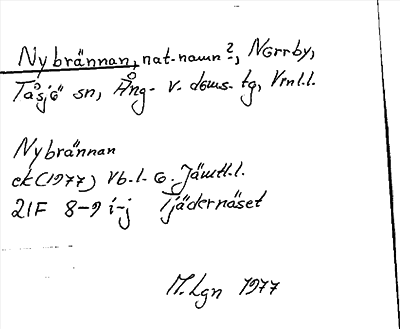 Nybrännan, nat.namn?, Norrby,
Tåsjö sn, Ång- v. doms. tg, Vrnl.l.
Nybrännan
ek (1977) Vb.l. o. Jämtl.l.
21F 8-9 i-j Tjädernäset
M.Lgn 1977